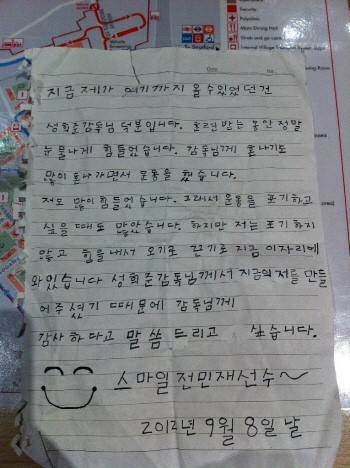 Security
Polyclinic
Main Dining Hall
Date
No.
지금 제가 여기까지 올 수 있었던건
성희준감독님 덕분입니다. 훈련 받는 동안 정말
눈물나게 힘들었습니다. 감독님께 혼나기도
많이 혼나가면서 운동을 했습니다.
저도 많이 힘들었습니다. 그래서 운동을 포기하고
싶을 때도 많았습니다. 하지만 저는 포기하지
않고 힘을 내서 오기로 끈기로 지금 이자리에
와있습니다 성희준감독님께서 지금의 저를 만들
어주셨기 때문에 감독님께
감사하다고 말씀 드리고 싶습니다.
스마일 전민재선수~
2012년 9월 8일 날